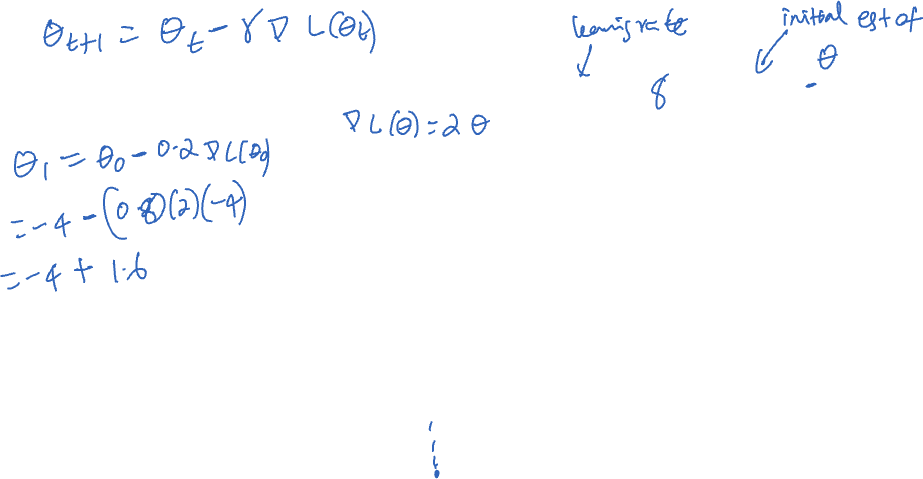 θt+1 = θt - γ ∇ L(θt)
learning rate
initial est of
θ
8
∇ L(θ) = 2 θ
θ1 = θ0 - 0.2 ∇L(θ0)
= -4 - (0.8)(2)(-4)
= -4 + 1.6